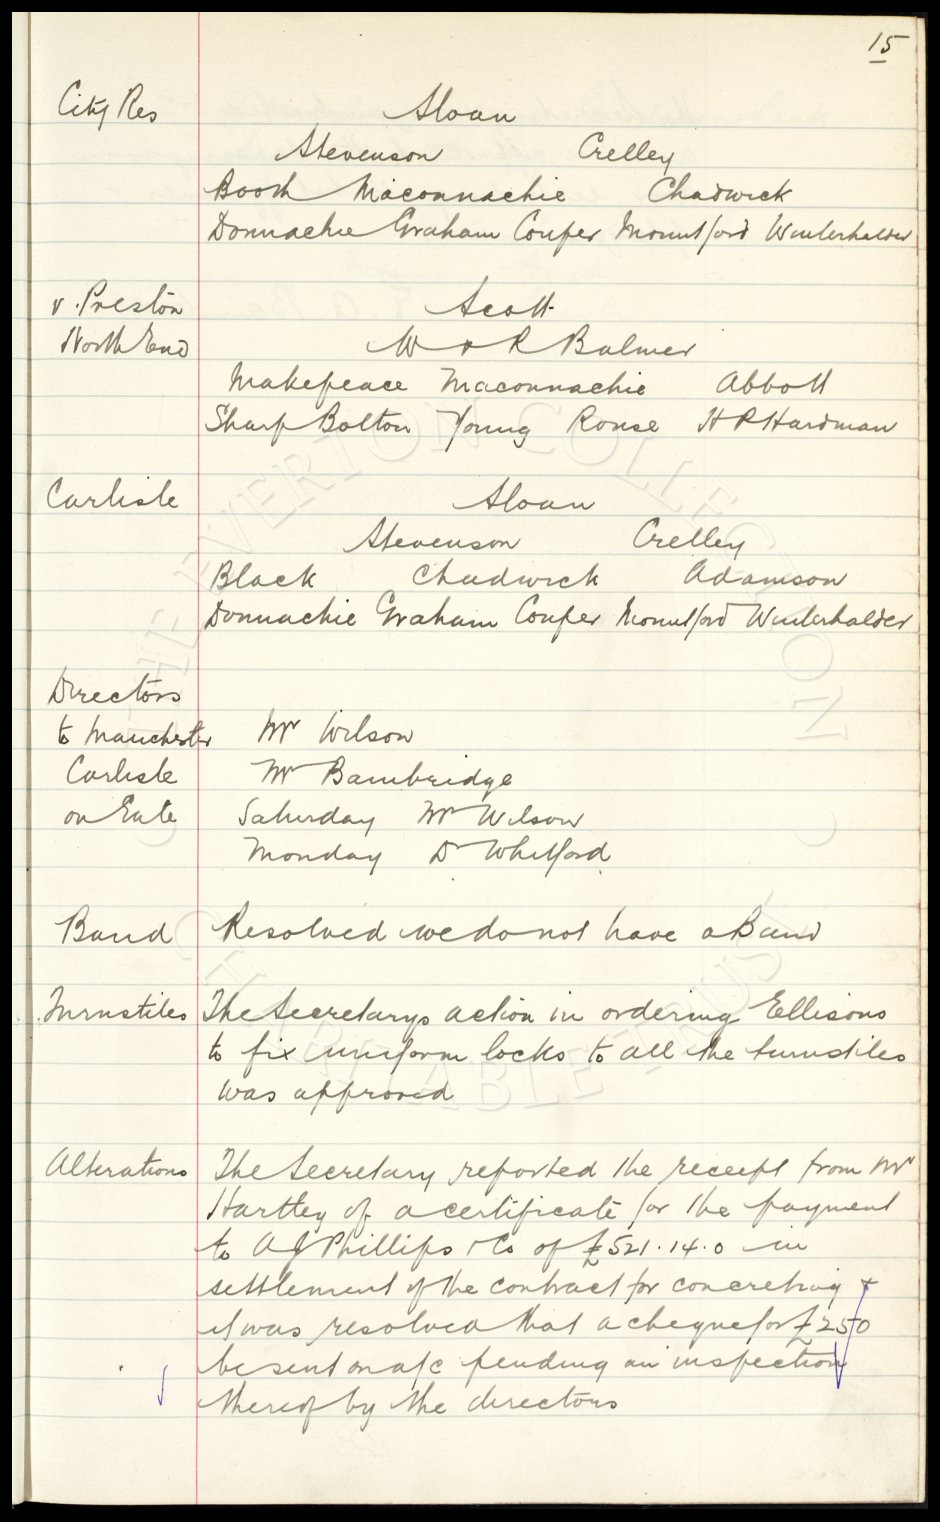 15
City Res Sloan
Stevenson Crelley
Booth Maconnachie Chadwick
Donnachie Graham Couper Mountford Winterhalder
v. Preston Scott
North End W & R Balmer
Makepeace Maconnachie Abbott
Sharp Bolton Young Rouse H P Hardman
Carlisle Sloan
Stevenson Crelley
Black Chadwick Adamson
Donnachie Graham Couper Mountford Winterhalder
Directors
to Manchester Mr Wilson
Carlisle Mr Bainbridge
on Gate Saturday Mr Wilson
Monday Dr Whitford
Band Resolved we do not have a Band
Turnstiles The Secretarys action in ordering Ellisons
to fix uniform locks to all the turnstiles
was approved
Alterations The Secretary reported the receipt from Mr
Hartley of a certificate for the payment
to A J Phillips & Co of £521.14.0 in
settlement of the contract for concreting &
it was resolved that a cheque for £250
be sent on a/c pending an inspection
thereof by the directors
THE EVERTON COLLECTION
CHARITABLE TRUST